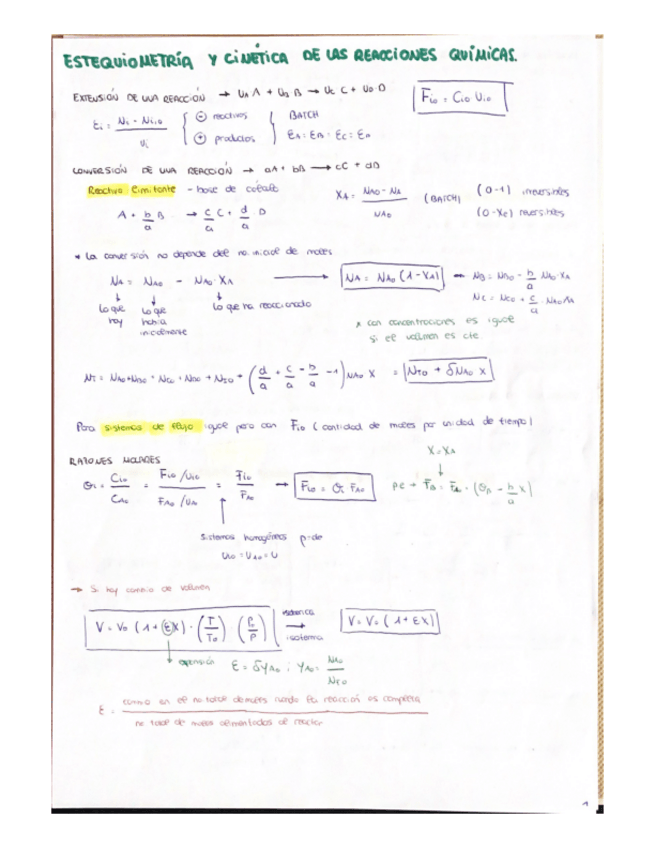 ESTEQUIOMETRÍA Y CINÉTICA DE LAS REACCIONES QUÍMICAS.
EXTENSIÓN DE UNA REACCIÓN → υA A + υB B → υC C + υD D
Fio = Cio υio
εi = Ni - Ni,0 / υi { ⊖ reactivos ⊕ productos { BATCH εA = εB = εC = εD
CONVERSIÓN DE UNA REACCIÓN → aA + bB → cC + dD
Reactivo Limitante - base de cálculo
XA = NA0 - NA / NA0 (BATCH) (0-1) irreversibles
(0-Xe) reversibles
A + b/a B → c/a C + d/a D
* La conversión no depende del no. inicial de moles
NA = NA0 - NA0·XA → NA = NA0 (1-XA) → NB = NB0 - b/a NA0·XA
NC = NC0 + c/a NA0 XA
Lo que hay
Lo que había inicialmente
Lo que ha reaccionado
* con concentraciones es igual
si el volumen es cte.
NT = NA0 + NB0 + NC0 + ND0 + NI0 + (d/a + c/a - b/a - 1) NA0 X = NT0 + δNA0 X
Para sistemas de flujo igual pero con Fio (cantidad de moles por unidad de tiempo)
X = XA
RAZONES MOLARES
Θi = Cio / CA0 = Fio/υio / FA0/υA0 = Fio / FA0 → Fio = Θi FA0
FB = FA0 · (ΘB - b/a X)
Sistemas homogéneos
υio = υA0 = υ
→ Si hay cambio de volumen
V = V0 (1 + εX) · (T/T0) · (P0/P) → isobárica isoterma V = V0 (1 + εX)
expansión ε = δyA0 ; yA0 = NA0 / NT0
ε = cambio en el no total de moles cuando la reacción es completa / no total de moles alimentados al reactor
1